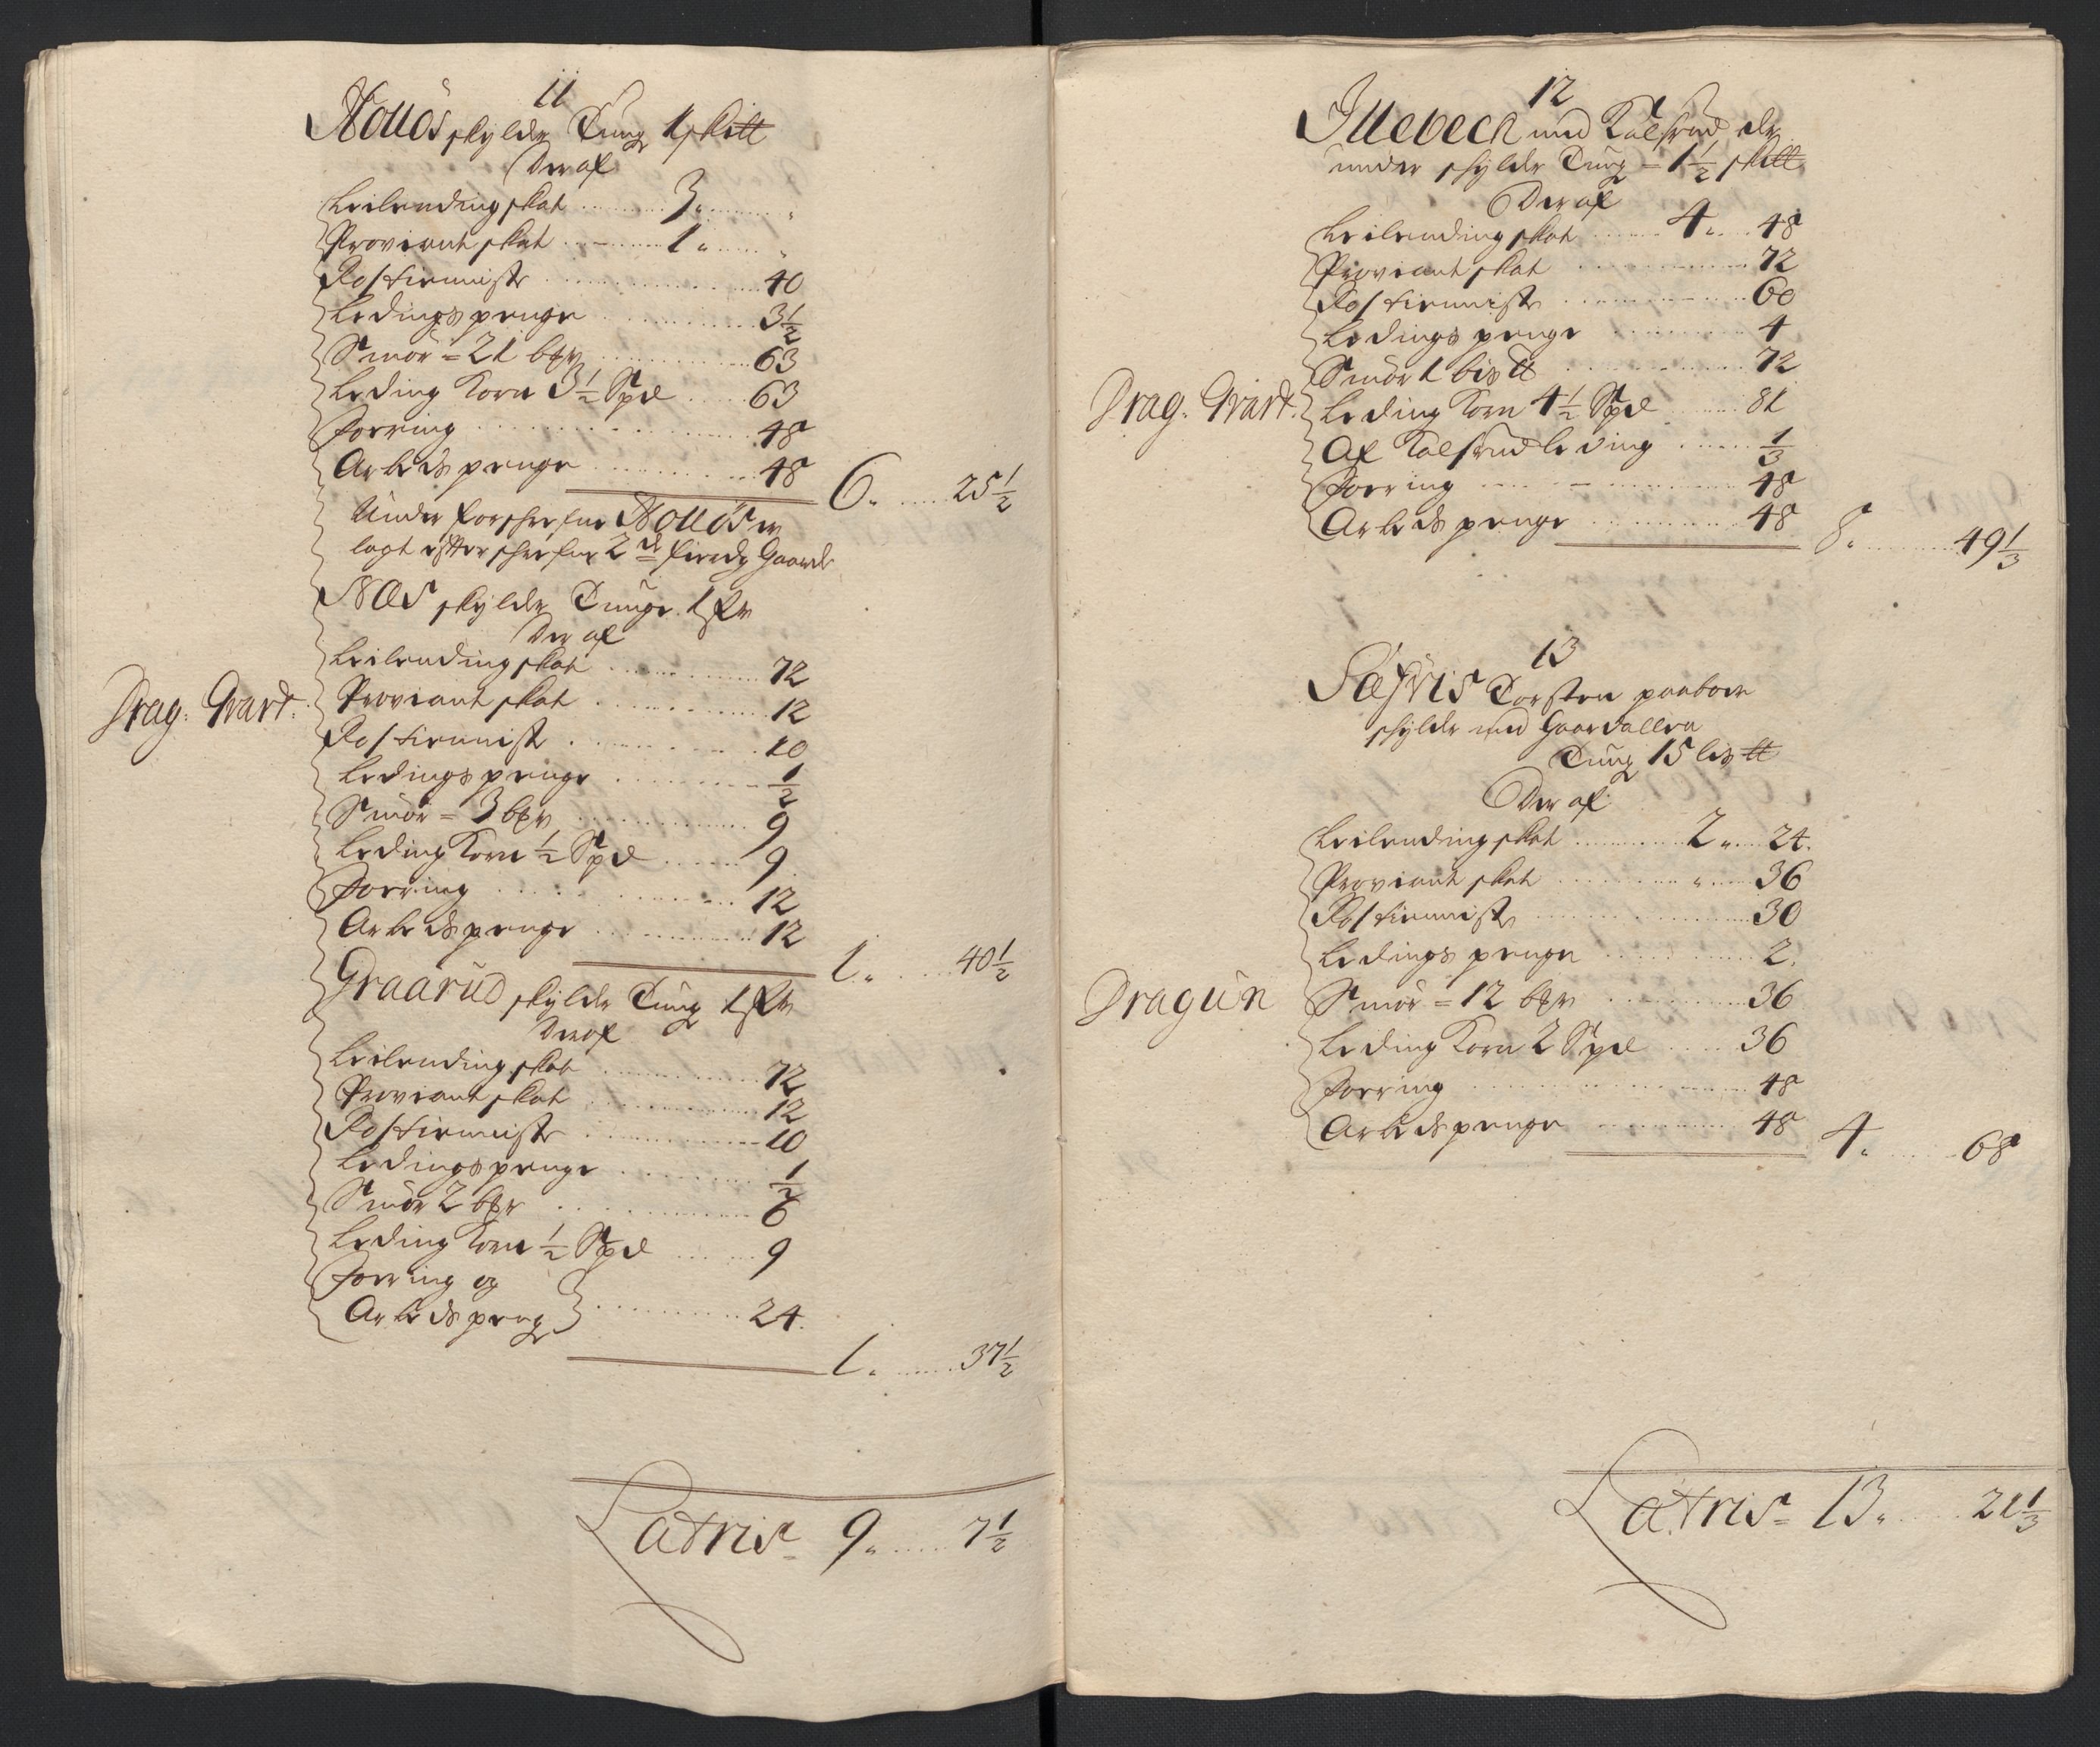 11
Nolløs skylder Tung 1 skt
Der af
Leilending skat 3.
Proviant skat 1.
Rostieniste 40
Ledings penge 3½
Smör = 21 bpr 63
Leding Korn 3½ Spd 63
Forring 48
Arbeds penge 48
6. 25½
Under forschrefne Nolløs er
lagt effterschrefne 2de fierdg Gaarde
Næs skylder Tunge 1 fr
Der af
Drag: Qvart:
Leilending skat 72
Proviant skat 12
Rostienist 10
Ledings penge ½
Smör = 3 bpr 9
Leding Korn ½ Spd 9
Forring 12
Arbeds penge 12
1. 40½
Graarud skylder Tung 1 fr
Der af
Leilending skat 72
Proviant skat 12
Rostieniste 10
Ledings penge ½
Smör 2 bpr 6
Leding Korn ½ Spd 9
Forring og
Arbeds peng 24.
1. 37½
Latris 9. 7½
12
Illebeck med Kolsrud der
under schylder Tung = 1½ skt
Der af
Leilending skat 4. 48
Proviant skat 72
Rostieniste 60
Ledings penge 4
Smör 1 bis℔ 72
Drag: Qvart:
Leding Korn 4½ Spd 81
Af Kolsrud leding ⅓
Forring 48
Arbeds penge 48
8. 49⅓
13
Torsten paaboer
schylder med Gaardalleen
Tung 15 lis℔
Der af
Leilending skat 2. 24.
Proviant skat 36
Rostieniste 30
Ledings penge 2.
Dragun
Smör = 12 bpr 36
Leding Korn 2 Spd 36
Forring 48
Arbeds penge 48
4. 68
Latris 13. 21⅓